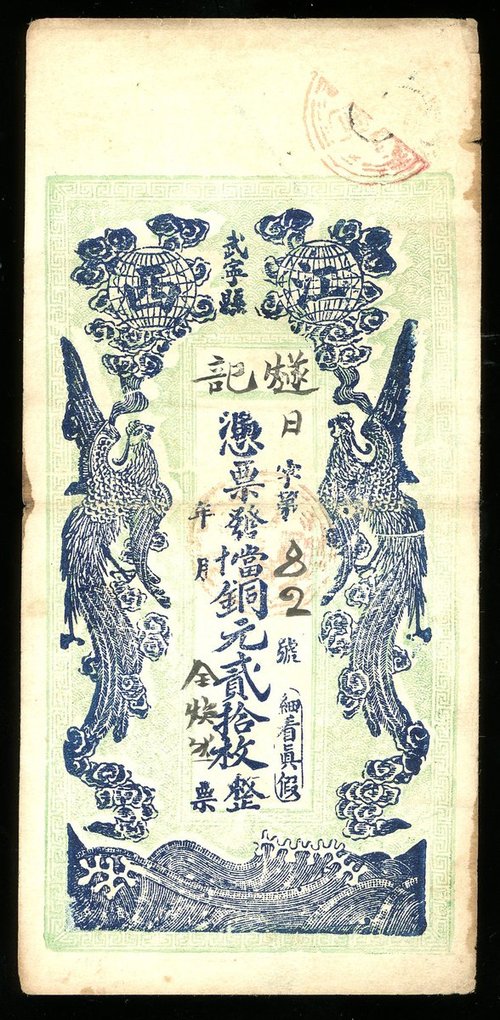 江西
武寧縣
燧記
日字第82號
細看真假
憑票發當十銅元貳拾枚整
年月
票